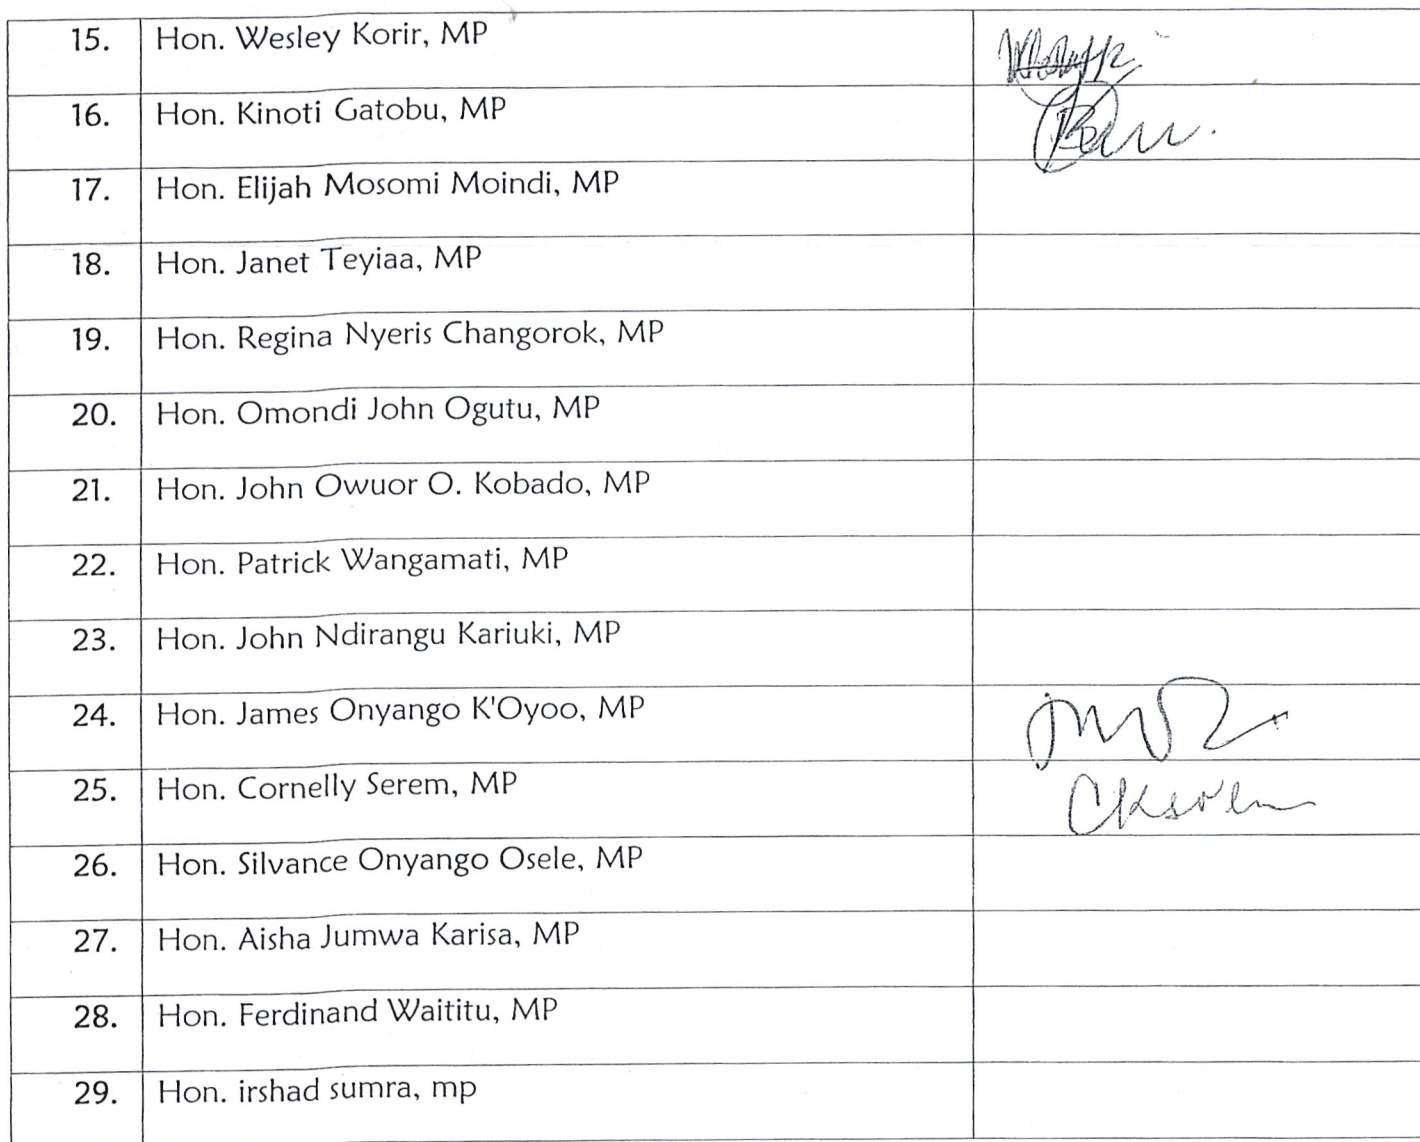 15. Hon. Wesley Korir, MP
16. Hon. Kinoti Gatobu, MP
17. Hon. Elijah Mosomi Moindi, MP
18. Hon. Janet Teyiaa, MP
19. Hon. Regina Nyeris Changorok, MP
20. Hon. Omondi John Ogutu, MP
21. Hon. John Owuor O. Kobado, MP
22. Hon. Patrick Wangamati, MP
23. Hon. John Ndirangu Kariuki, MP
24. Hon. James Onyango K'Oyoo, MP
25. Hon. Cornelly Serem, MP CKserem
26. Hon. Silvance Onyango Osele, MP
27. Hon. Aisha Jumwa Karisa, MP
28. Hon. Ferdinand Waititu, MP
29. Hon. irshad sumra, mp